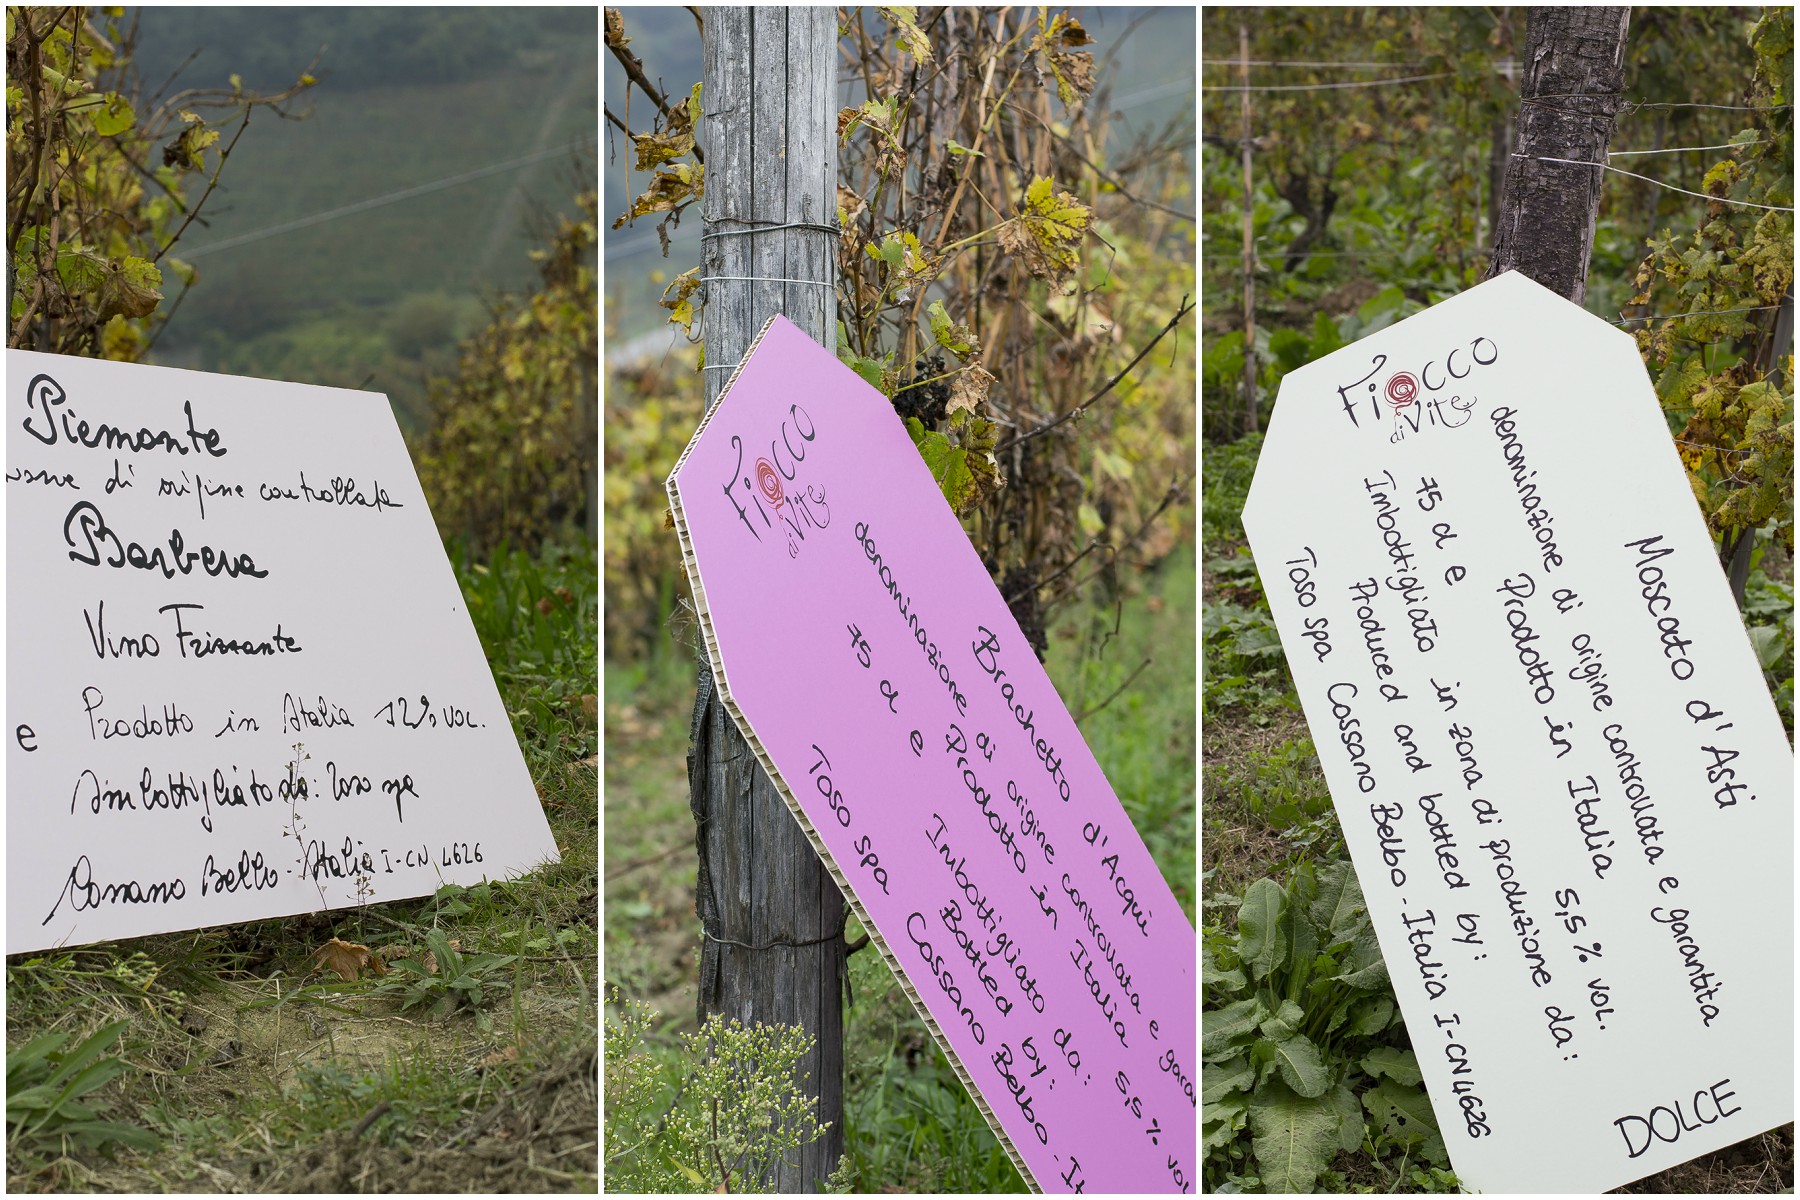 Piemonte
di origine controllata
Barbera
Vino Frizzante
e Prodotto in Italia 12% vol.
Imbottigliato da: Toso spa
Cossano Belbo - Italia I-CN 4626
Fiocco
di Vite
Brachetto d'Acqui
denominazione di origine controllata e garan
Prodotto in Italia 5,5 % vol
75 cl e
Imbottigliato da:
Bottled by:
Toso spa Cossano Belbo - It
Fiocco
di Vite
Moscato d'Asti
denominazione di origine controllata e garantita
Prodotto in Italia 5,5 % vol.
75 cl e
Imbottigliato in zona di produzione da:
Produced and bottled by:
Toso spa Cossano Belbo - Italia I-CN4626
DOLCE